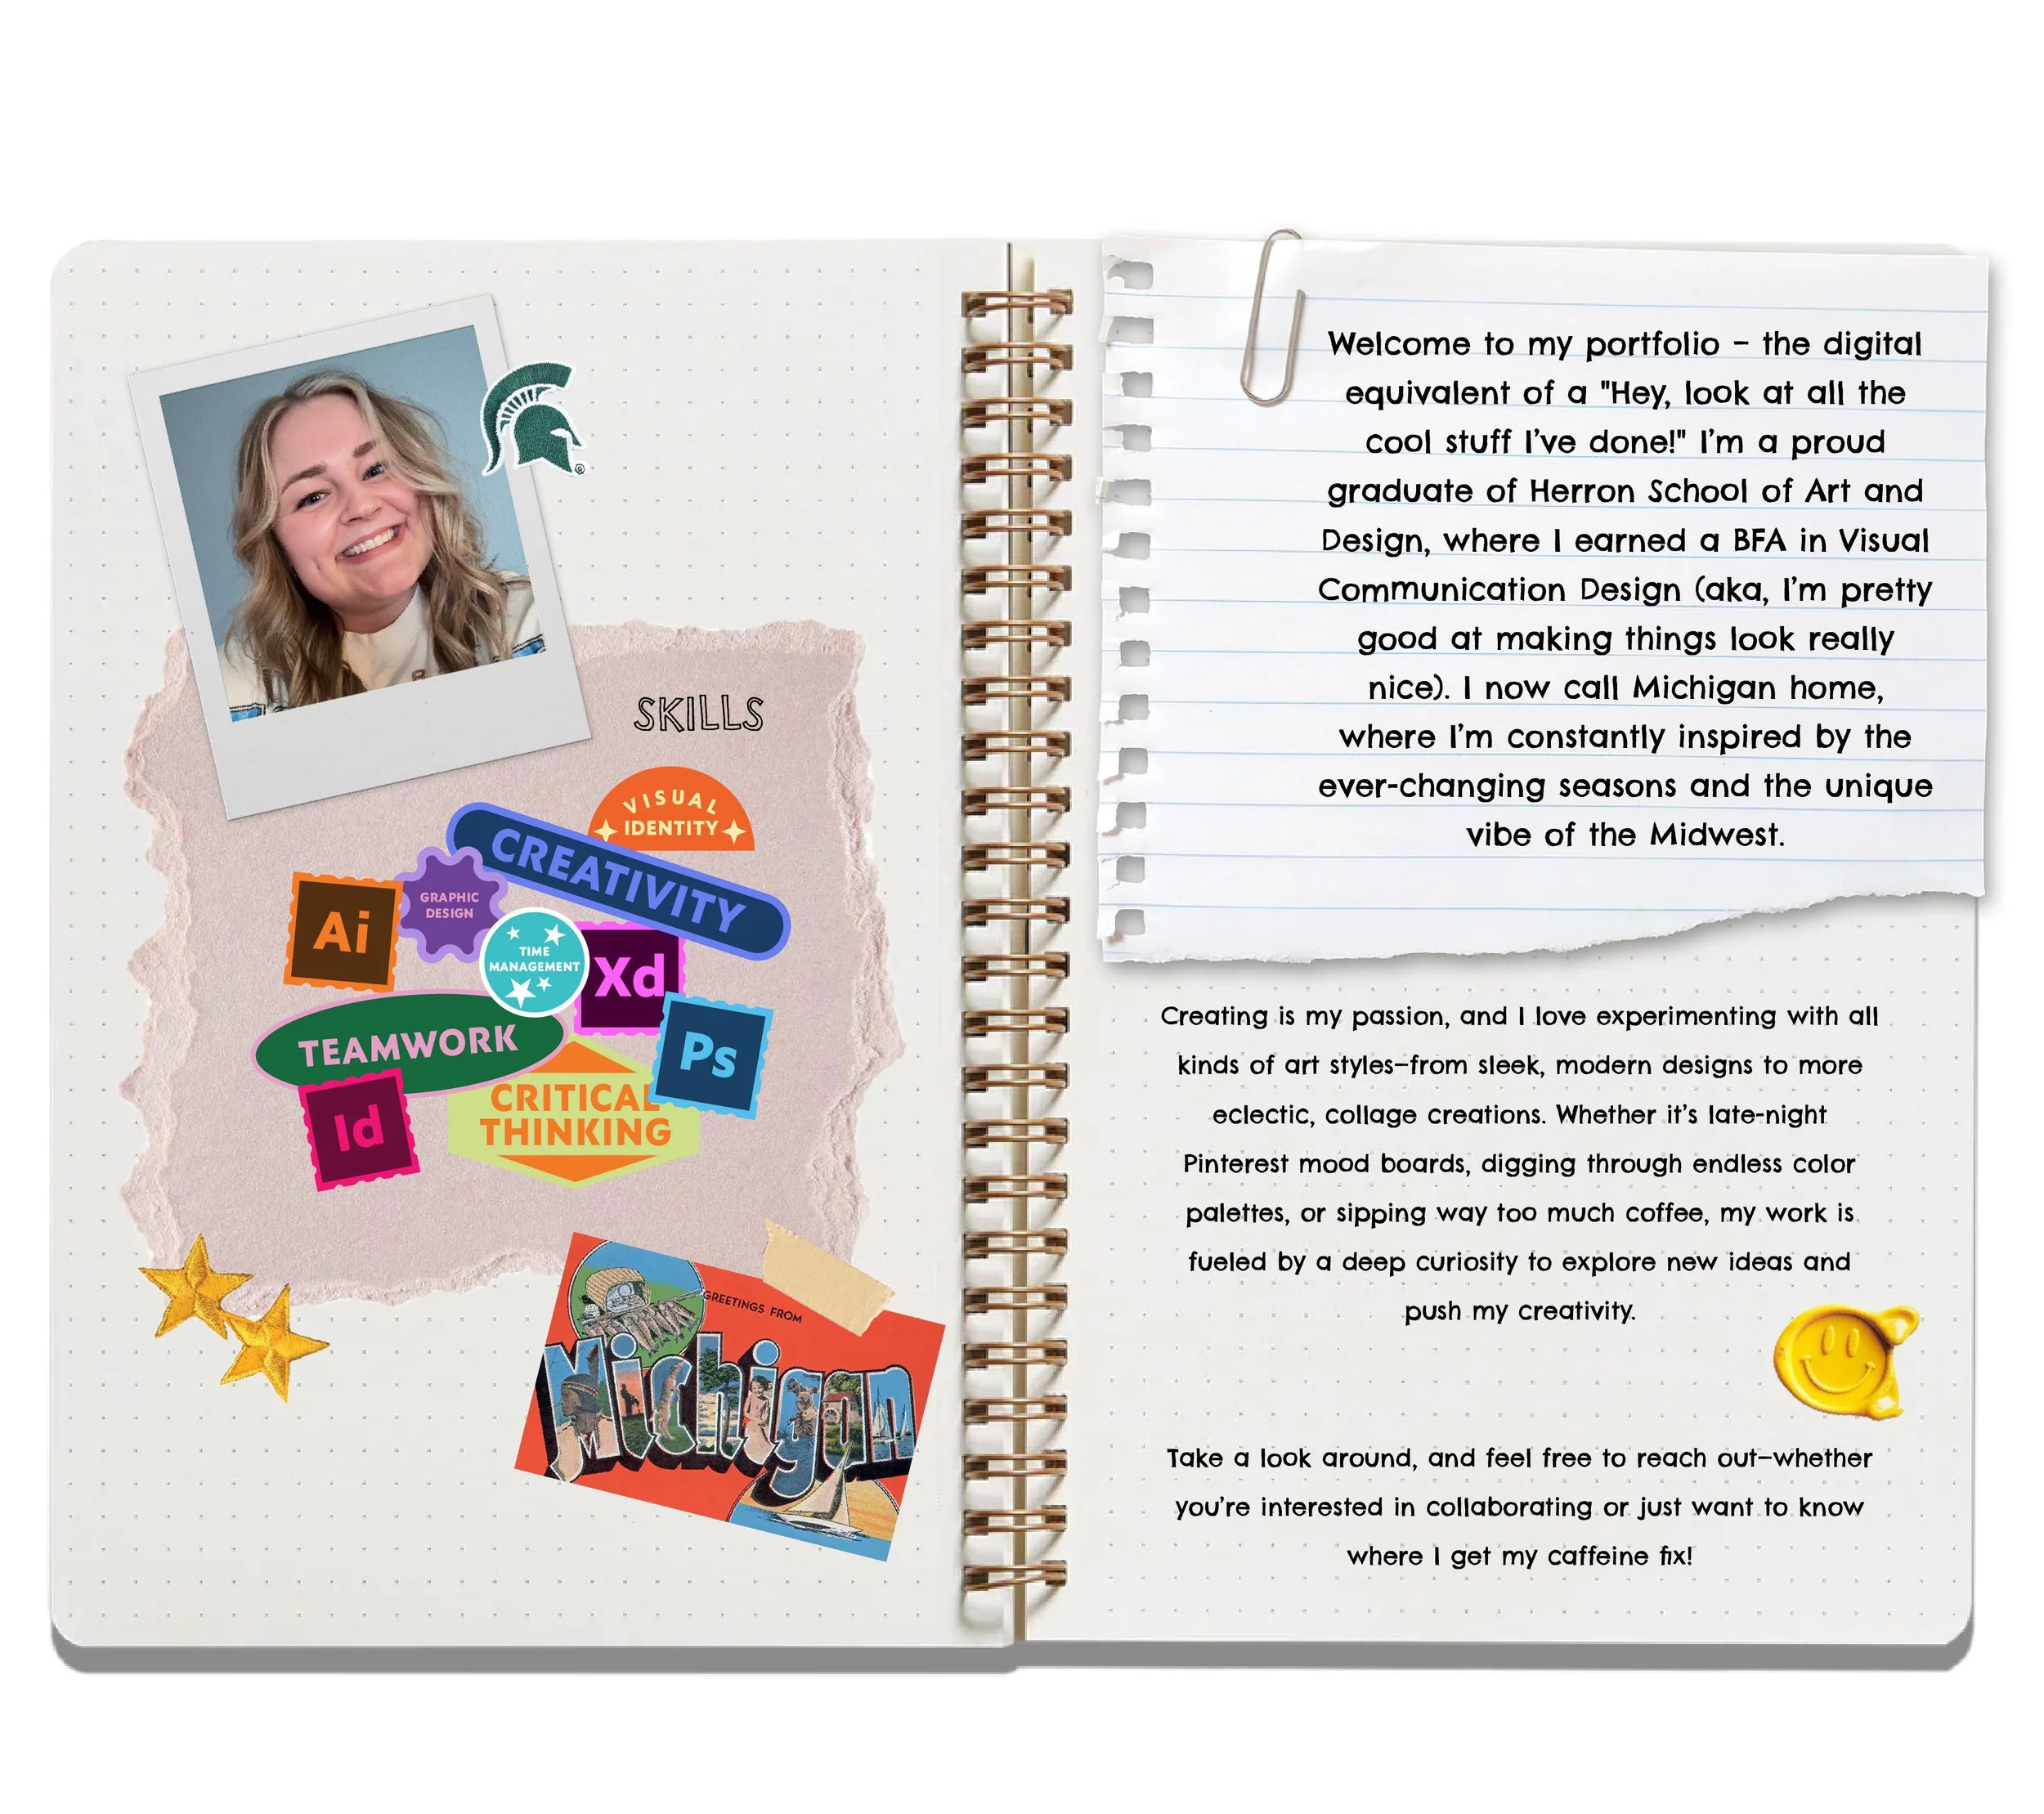 SKILLS
VISUAL
IDENTITY
CREATIVITY
GRAPHIC
DESIGN
Ai
TIME
MANAGEMENT
Xd
TEAMWORK
Ps
CRITICAL
THINKING
Id
GREETINGS FROM
Michigan
®
Welcome to my portfolio – the digital
equivalent of a "Hey, look at all the
cool stuff I've done!" I'm a proud
graduate of Herron School of Art and
Design, where I earned a BFA in Visual
Communication Design (aka, I'm pretty
good at making things look really
nice). I now call Michigan home,
where I'm constantly inspired by the
ever-changing seasons and the unique
vibe of the Midwest.
Creating is my passion, and I love experimenting with all
kinds of art styles—from sleek, modern designs to more
eclectic, collage creations. Whether it's late-night
Pinterest mood boards, digging through endless color
palettes, or sipping way too much coffee, my work is
fueled by a deep curiosity to explore new ideas and
push my creativity.
Take a look around, and feel free to reach out—whether
you're interested in collaborating or just want to know
where I get my caffeine fix!